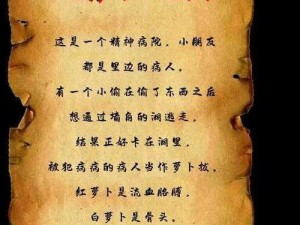 这是一个精神病院，小朋友
都是里边的病人。
有一个小偷在偷了东西之后
想通过墙角的洞逃走。
结果正好卡在洞里。
被犯病病的病人当作萝卜拔。
红萝卜是流血胳膊，
白萝卜是骨头。